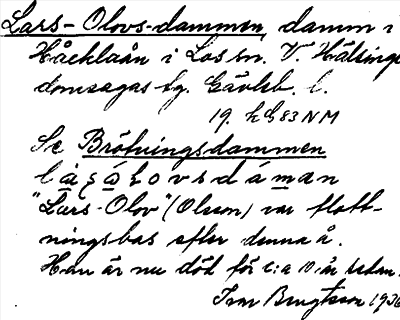 Lars-Olovs-dammen, damm i
Håcklaån i Los sn. V. Hälsingl
domsagas tg. Gävleb. l.
19. h G 83 NM
Se Brötningsdammen
"Lars-Olov" (Olsson) var flott-
ningsbas efter denna å.
Han är nu död för c:a 10 år sedan.
Ivar Bengtsson 1936